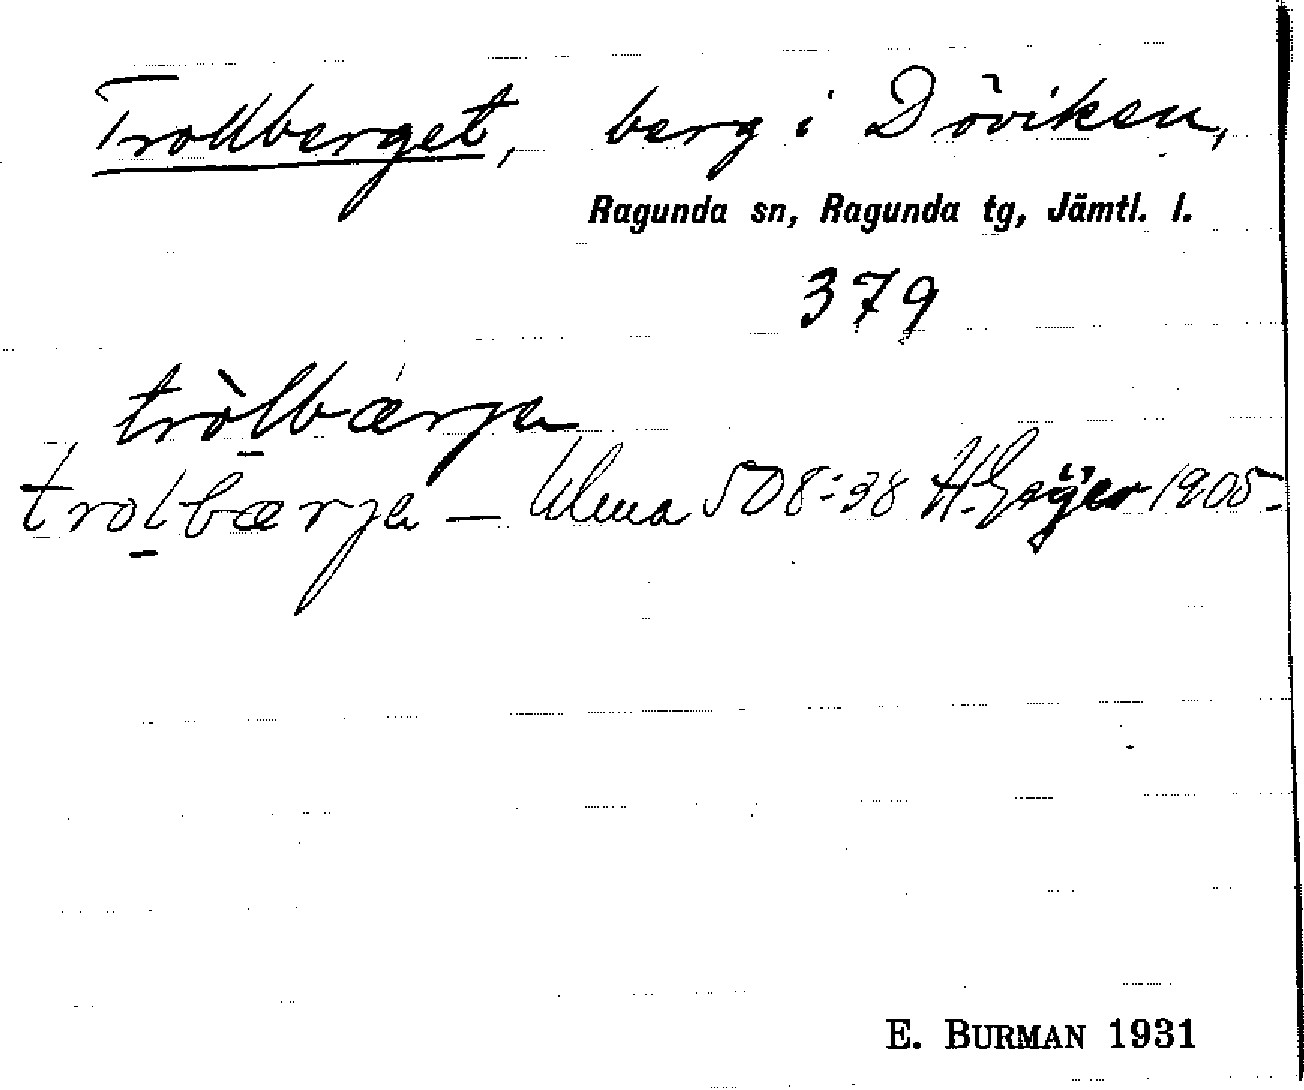 Trollberget, berg i Döviken,
Ragunda sn, Ragunda tg, Jämtl. l.
379
tròlbærja
trolbærja — Ulma 508:38 H. Geijer 1905.
E. BURMAN 1931